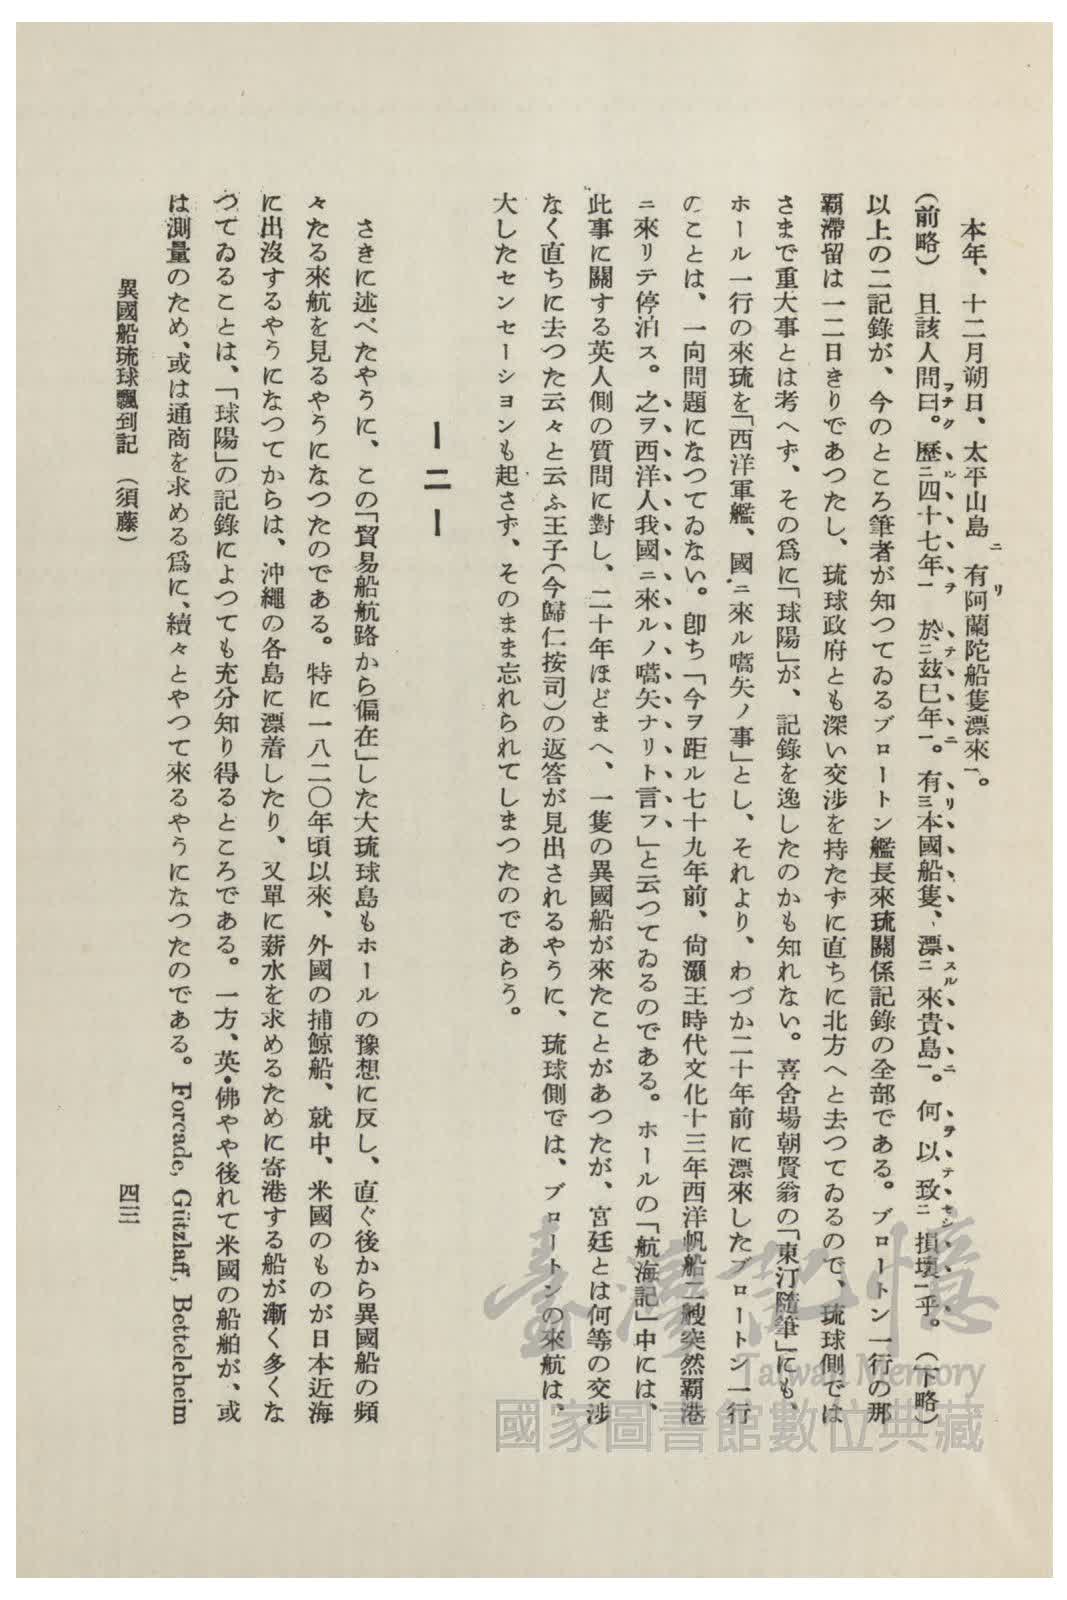 本年、十二月朔日、太平山島ニ有リ阿蘭陀船隻漂來一。
(前略) 且該人問曰。歷ニ四十七年一 於ニ玆巳年一。有三本國船隻、漂ニ來貴島一。何以致ニ損壞一乎。(下略)
以上の二記錄が、今のところ筆者が知つてゐるブロートン艦長來琉關係記錄の全部である。ブロートン一行の那
覇滯留は一二日きりであつたし、琉球政府とも深い交渉を持たずに直ちに北方へと去つてゐるので、琉球側では
さまで重大事とは考へず、その爲に「球陽」が、記錄を逸したのかも知れない。喜舍場朝賢翁の「東汀隨筆」にも、
ホール一行の來琉を「西洋軍艦、國ニ來ル嚆矢ノ事」とし、それより、わづか二十年前に漂來したブロートン一行
のことは、一向問題になつてゐない。卽ち「今ヲ距ル七十九年前、尙灝王時代文化十三年西洋帆船二艘突然覇港
ニ來リテ停泊ス。之ヲ西洋人我國ニ來ルノ嚆矢ナリト言フ」と云つてゐるのである。ホールの「航海記」中には、
此事に關する英人側の質問に對し、二十年ほどまへ、一隻の異國船が來たことがあつたが、宮廷とは何等の交渉
なく直ちに去つた云々と云ふ王子(今歸仁按司)の返答が見出されるやうに、琉球側では、ブロートンの來航は、
大したセンセーションも起さず、そのまま忘れられてしまつたのであらう。
ー二ー
さきに述べたやうに、この「貿易船航路から偏在」した大琉球島もホールの豫想に反し、直ぐ後から異國船の頻
々たる來航を見るやうになつたのである。特に一八二〇年頃以來、外國の捕鯨船、就中、米國のものが日本近海
に出沒するやうになつてからは、沖繩の各島に漂着したり、又單に薪水を求めるために寄港する船が漸く多くな
つてゐることは、「球陽」の記錄によつても充分知り得るところである。一方、英・佛やや後れて米國の船舶が、或
は測量のため、或は通商を求める爲に、續々とやつて來るやうになつたのである。Forcade, Gützlaff, Betteleheim
異國船琉球飄到記 (須藤)
四三
臺灣記憶
Taiwan Memory
國家圖書館數位典藏